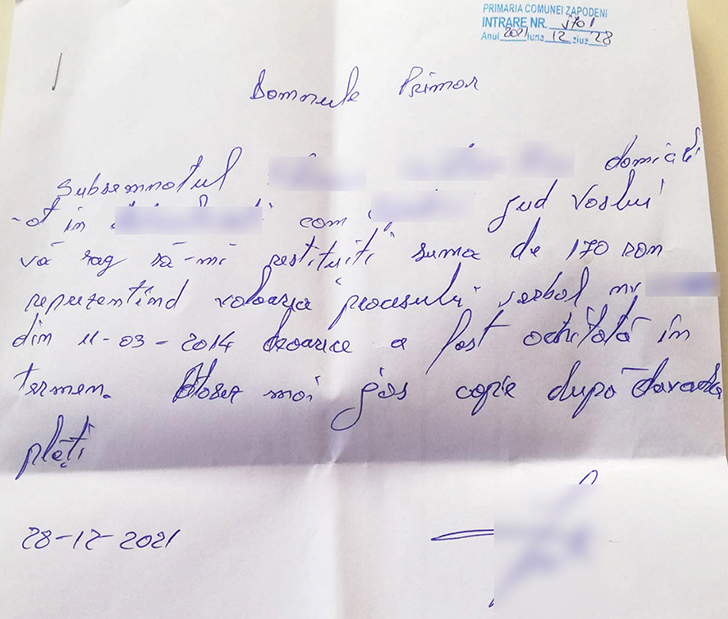 PRIMARIA COMUNEI ZAPODENI
INTRARE NR. 1701
Anul 2021 luna 12 ziua 28
Domnule Primar
Subsemnatul domicili
-at in com jud Vaslui
vă rog să-mi restituiti suma de 170 ron
reprezentind valoarea procesului verbal nr
din 11-03-2014 deoarece a fost achitată în
termen. mai jos copie după dovada
plăți
28-12-2021